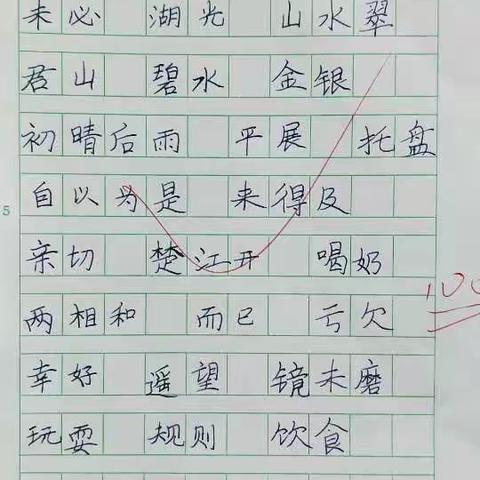 未必 湖光 山水翠
君山 碧水 金银
初晴后雨 平展 托盘
自以为是 来得及
亲切 楚江开 喝奶
两相和 而已 亏欠
幸好 遥望 镜未磨
玩耍 规则 饮食
5
100